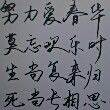 努力爱春华
莫忘欢乐时
生当复来归
死当长相思